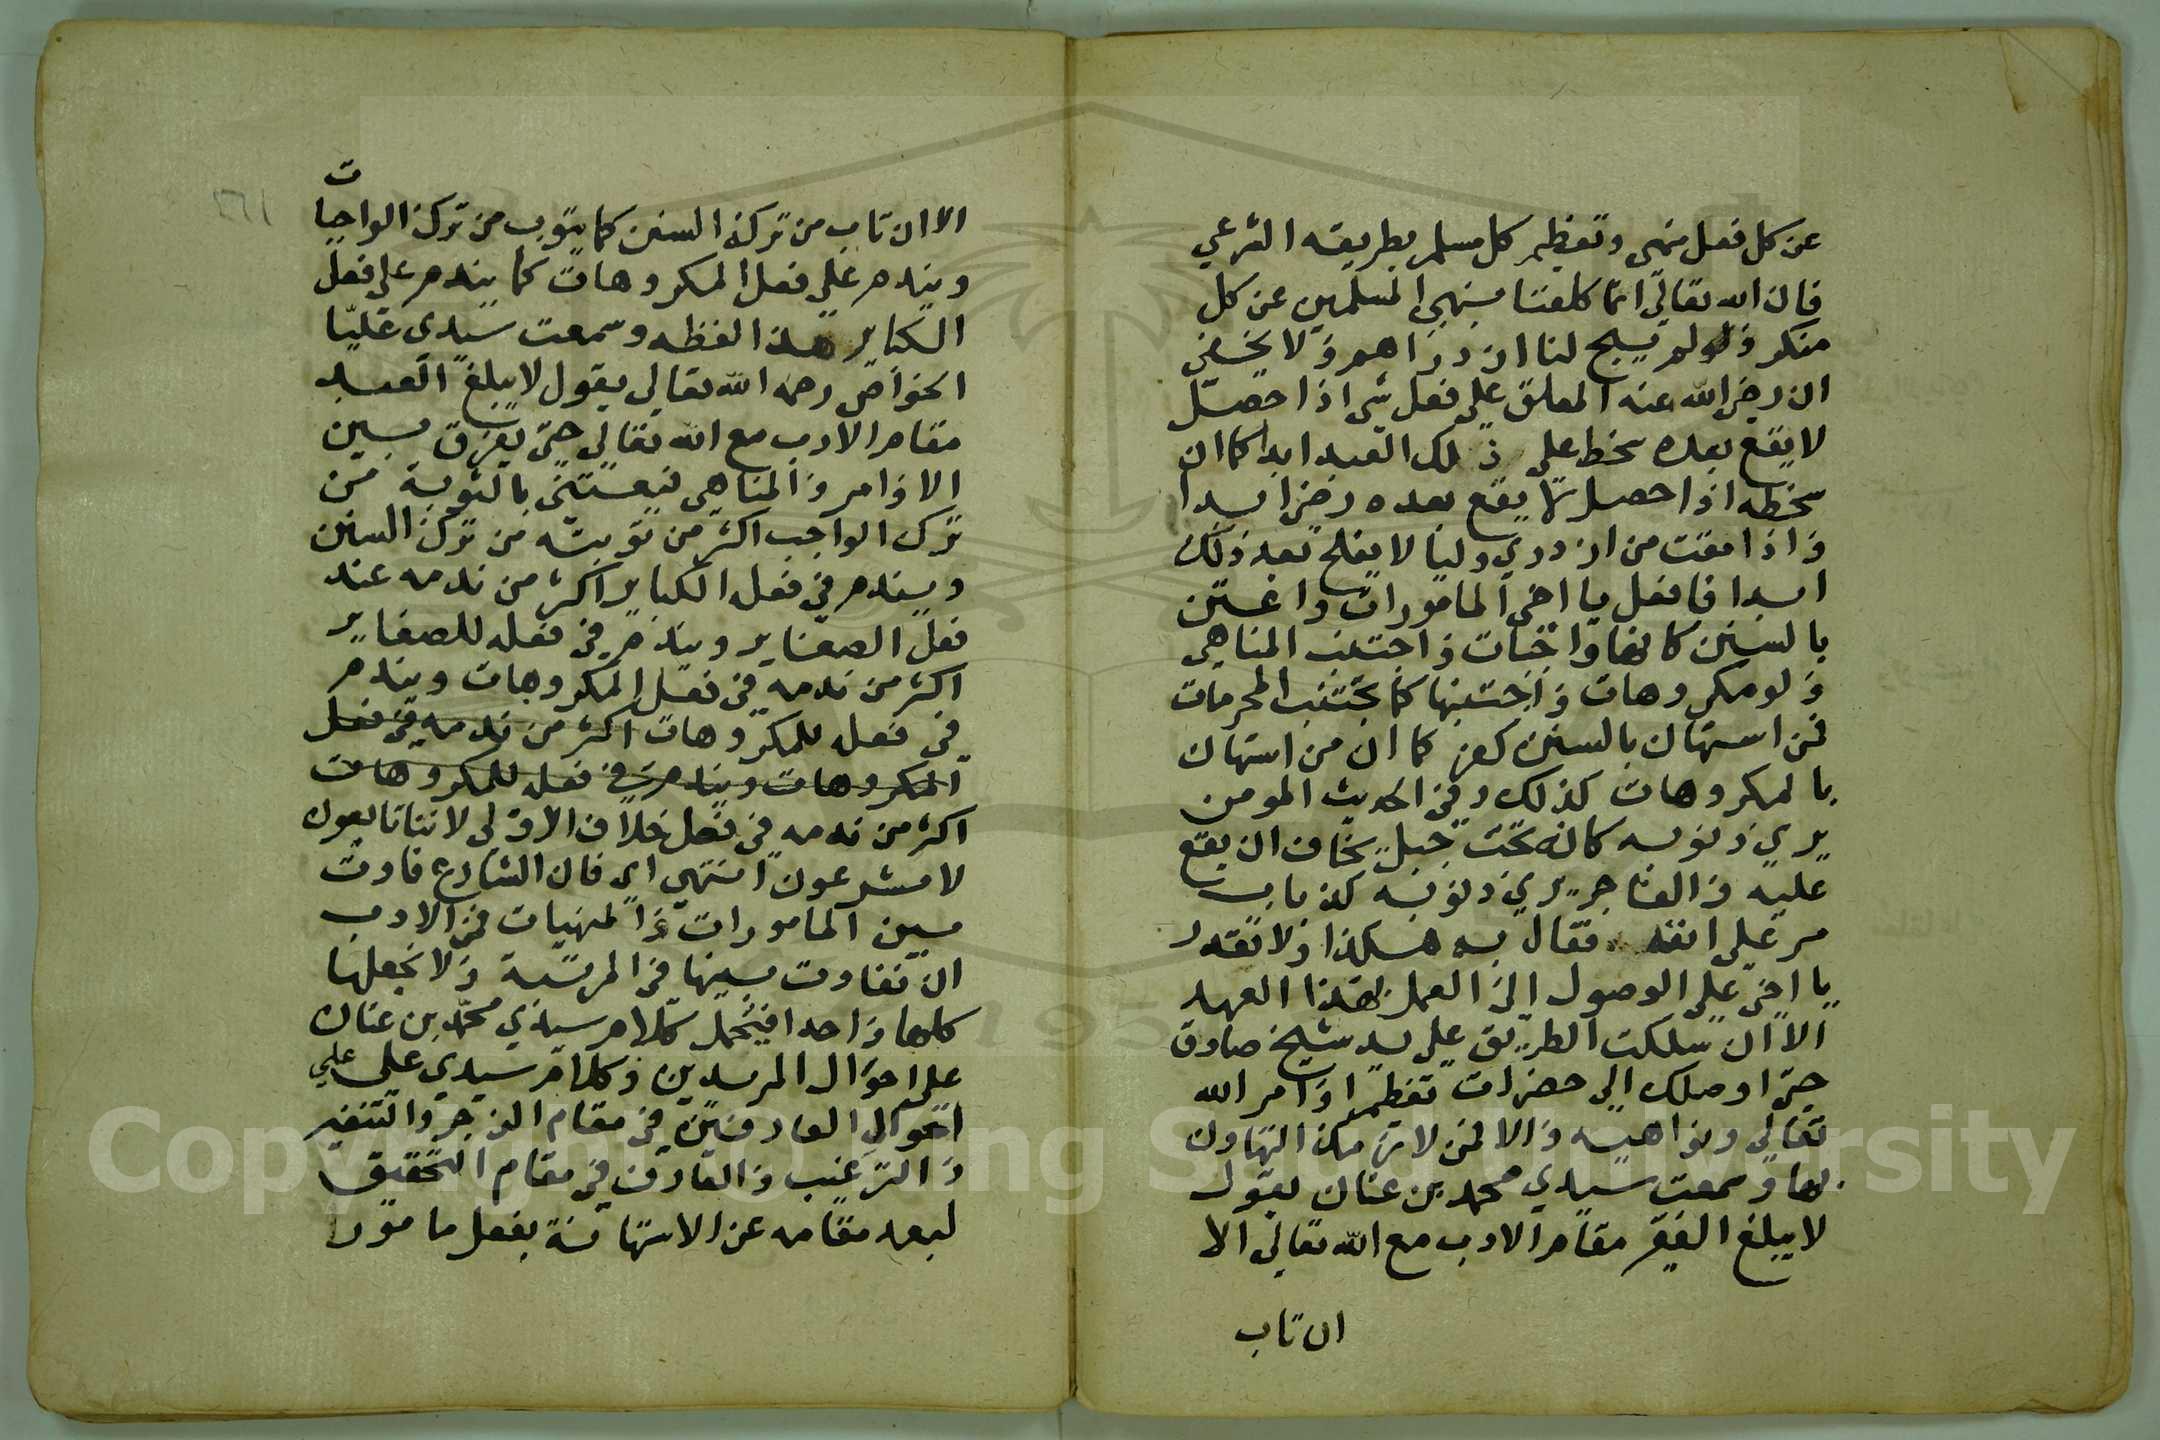 عن كل فعل منهى وتعظيم كل مسلم بطريقه الشرعي
فان الله تعالى انما كلفنا بنهي المسلمين عن كل
منكر ولم يبح لنا ازدراهم ولا يخفى
ان رضى الله عنه المعلق على فعل شى اذا حصل
لا يقع بعده سخط على ذلك العبد ابدا كما ان
سخطه اذا حصل لا يقع بعده رضى ابدا
واذا مقت من ازدري وليا لا يفلح بعد ذلك
ابدا فافعل يا اخى المامورات واعتن
بالسنن كانها واجبات واجتنب المناهي
ولو مكروهات واجتنبها كما تجتنب المحرمات
فمن استهان بالسنن كفر كما ان من استهان
بالمكروهات كذلك وفي الحديث المومن
يري ذنوبه كانه تحت جبل يخاف ان يقع
عليه والفاجر يري ذنوبه كذباب
مر على انفه فقال به هكذا ولا تقدر
يا اخى على الوصول الى العمل بهذا العهد
الا ان سلكت الطريق على يد شيخ صادق
حتى اوصلك الى حضرات تعظيم اوامر الله
تعالى ونواهيه والا فمن لازمك التهاون
بها وسمعت سيدي محمد بن عنان يقول
لا يبلغ الفقير مقام الادب مع الله تعالى الا
ان تاب
الا ان تاب من ترك السنن كما يتوب من ترك الواجبات
ويندم على فعل المكروهات كما يندم على فعل
الكباير هذا لفظه وسمعت سيدي عليا
الخواص رحمه الله تعالى يقول لا يبلغ العبد
مقام الادب مع الله تعالى حتى يفرق بين
الاوامر والمناهي فيعتنى بالتوبة من
ترك الواجب اكثر من توبته من ترك السنن
ويندم في فعل الكباير اكثر من ندمه عند
فعل الصغاير ويندم في فعله للصغاير
اكثر من ندمه في فعل المكروهات ويندم
في فعله للمكروهات اكثر من ندمه في فعل
المكروهات ويندم في فعله للمكروهات
اكثر من ندمه في فعل خلاف الاولى لاننا تابعون
لا مشرعون انتهي اي فان الشارع فاوت
بين المامورات والمنهيات فمن الادب
ان تفاوت بينها في المرتبة ولا نجعلها
كلها واحدا فيحمل كلام سيدي محمد بن عنان
على احوال المريدين وكلام سيدي على على
احوال العارفين في مقام الزجر والتنفير
والترغيب والعارف في مقام التحقيق
لبعد مقامه عن الاستهانة بفعل مامورا